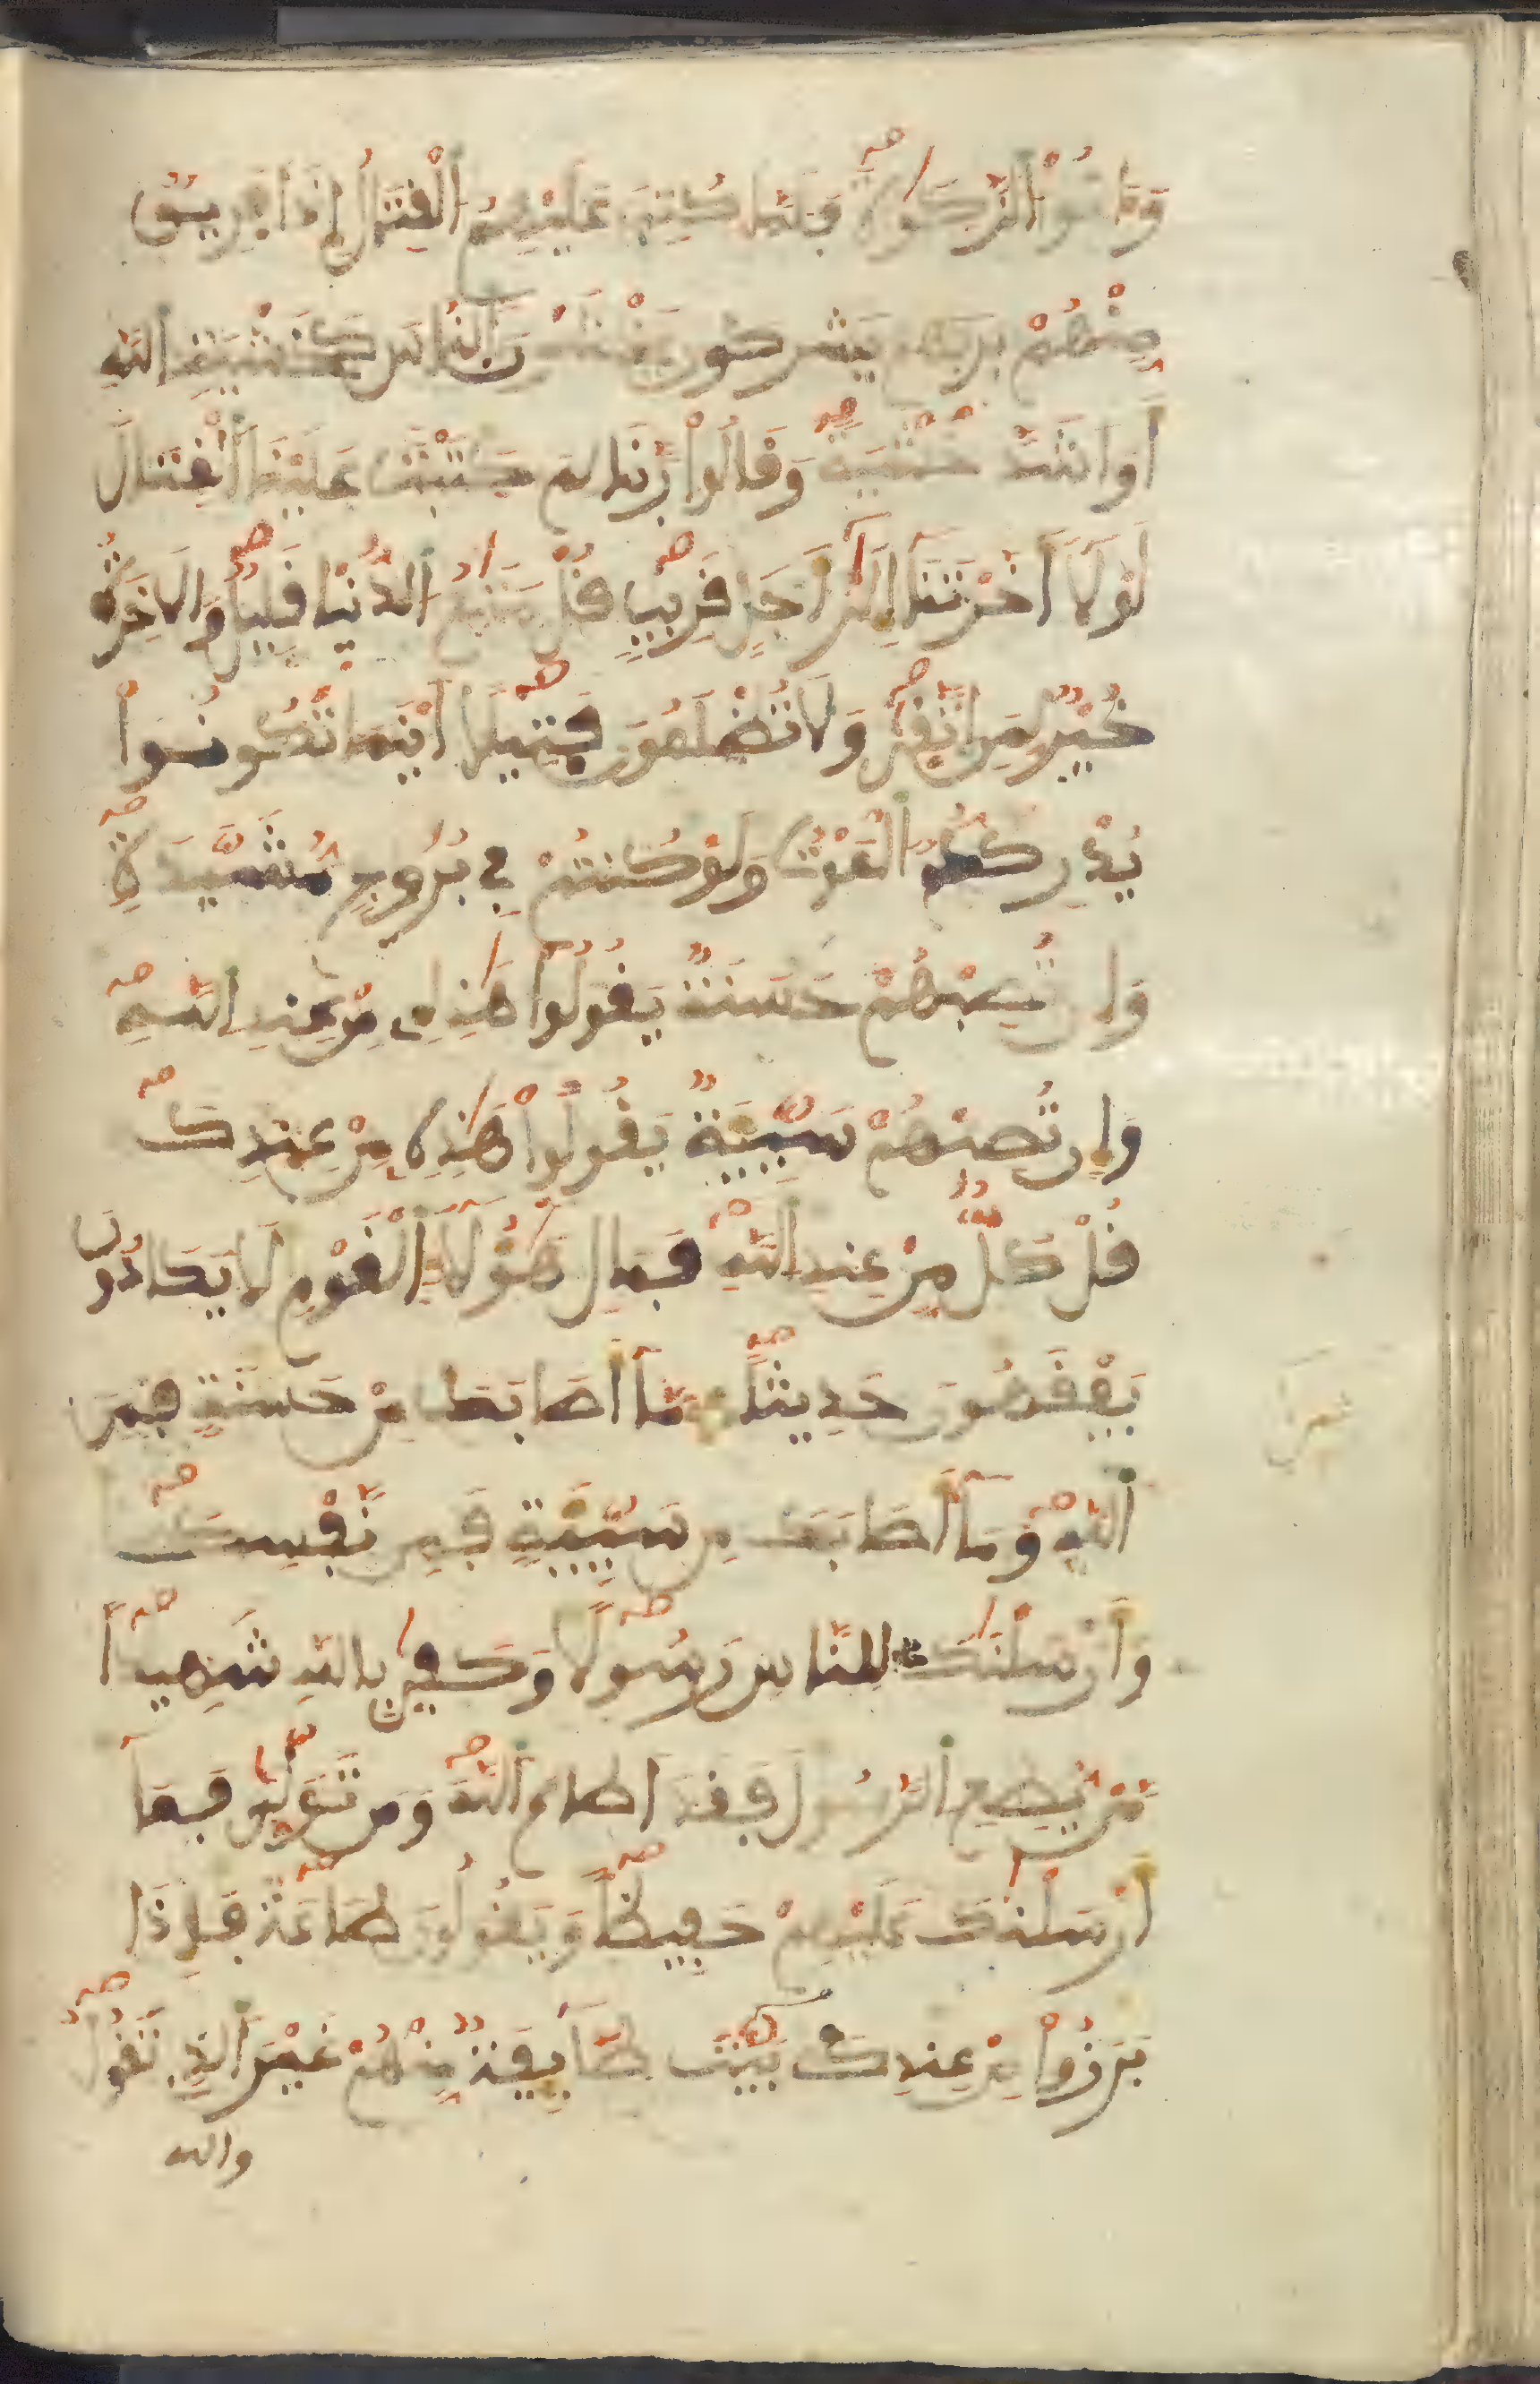 وَءَاتُوا۟ الزَّكَوٰةَ فَلَمَّا كُتِبَ عَلَيْهِمُ الْقِتَالُ إِذَا فَرِيقٌ
مِّنْهُمْ يَخْشَوْنَ النَّاسَ كَخَشْيَةِ اللَّهِ
أَوَ اَشَدَّ خَشْيَةً وَقَالُوا۟ رَبَّنَا لِمَ كَتَبْتَ عَلَيْنَا الْقِتَالَ
لَوْلَا أَخَّرْتَنَا إِلَىٰ أَجَلٍ قَرِيبٍ قُلْ مَتَٰعُ الدُّنْيَا قَلِيلٌ وَالَاخِرَةُ
خَيْرٌ لِّمَنِ اتَّقَىٰ وَلَا تُظْلَمُونَ فَتِيلًا أَيْنَمَا تَكُونُوا۟
يُدْرِككُّمُ الْمَوْتُ وَلَوْ كُنتُمْ فِي بُرُوجٍ مُّشَيَّدَةٍ
وَإِن تُصِبْهُمْ حَسَنَةٌ يَقُولُوا۟ هَٰذِهِ مِنْ عِندِ اللَّهِ
وَإِن تُصِبْهُمْ سَيِّئَةٌ يَقُولُوا۟ هَٰذِهِ مِنْ عِندِكَ
قُلْ كُلٌّ مِّنْ عِندِ اللَّهِ فَمَالِ هَٰؤُلَاءِ الْقَوْمِ لَا يَكَادُونَ
يَفْقَهُونَ حَدِيثًا مَّا أَصَابَكَ مِنْ حَسَنَةٍ فَمِنَ
اللَّهِ وَمَا أَصَابَكَ مِن سَيِّئَةٍ فَمِن نَّفْسِكَ
وَأَرْسَلْنَٰكَ لِلنَّاسِ رَسُولًا وَكَفَىٰ بِاللَّهِ شَهِيدًا
مَّنْ يُطِعِ الرَّسُولَ فَقَدَ اَطَاعَ اللَّهَ وَمَن تَوَلَّىٰ فَمَا
أَرْسَلْنَٰكَ عَلَيْهِمْ حَفِيظًا وَيَقُولُونَ طَاعَةٌ فَإِذَا
بَرَزُوا۟ مِنْ عِندِكَ بَيَّتَ طَائِفَةٌ مِّنْهُمْ غَيْرَ الَّذِي تَقُولُ
والله